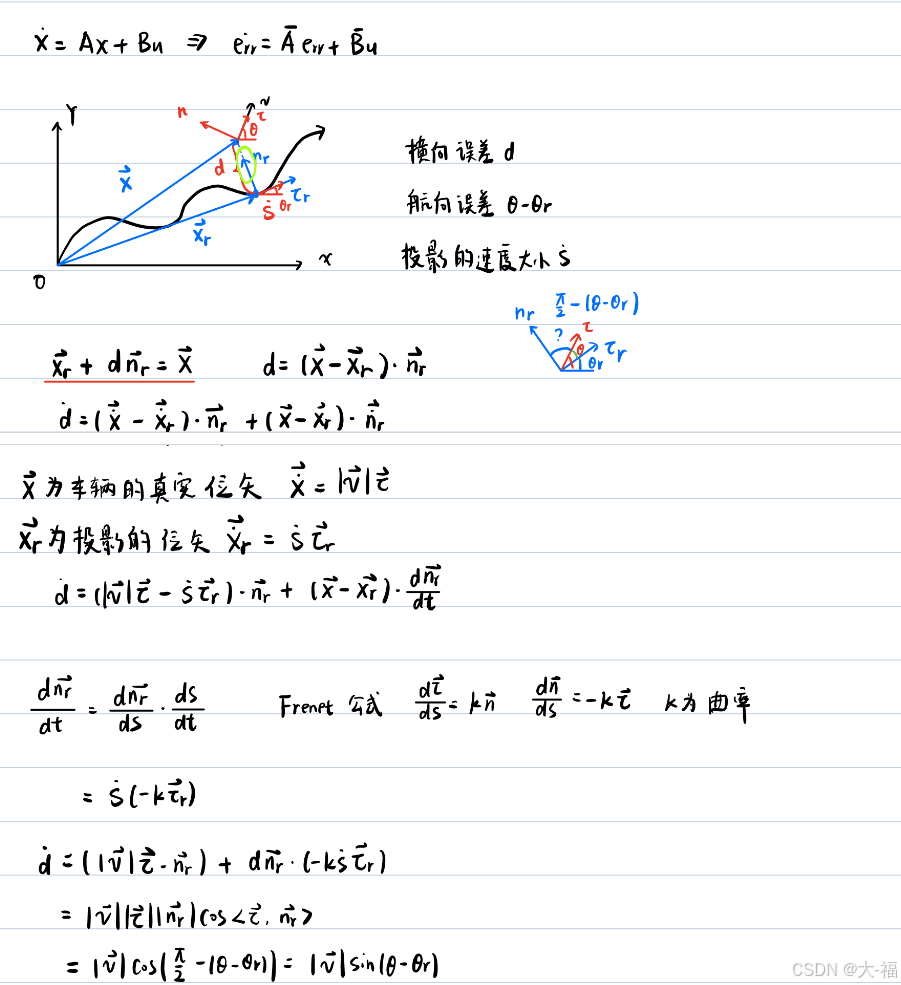 ẋ = Ax + Bu ⇒ ėrr = Ā err + B̄u
Y
n
v
τ
θ
d
n_r
x⃗
τ_r
ṡ θr
x⃗_r
x
O
横向误差 d
航向误差 θ-θr
投影的速度大小 ṡ
n_r π/2-(θ-θr)
? τ
θ τ_r
θr
x⃗_r + d n⃗_r = x⃗ d = (x⃗ - x⃗_r)·n⃗_r
ḋ = (ẋ⃗ - ẋ⃗_r)·n⃗_r + (x⃗ - x⃗_r)·ṅ⃗_r
x⃗ 为车辆的真实位矢 ẋ⃗ = |v⃗|τ⃗
x⃗_r 为投影的位矢 ẋ⃗_r = ṡ τ⃗_r
ḋ = (|v⃗|τ⃗ - ṡτ⃗_r)·n⃗_r + (x⃗ - x⃗_r)·dn⃗_r/dt
dn⃗_r/dt = dn⃗_r/ds · ds/dt Frenet 公式 dτ⃗/ds = kn⃗ dn⃗/ds = -kτ⃗ k为曲率
= ṡ(-kτ⃗_r)
ḋ = (|v⃗|τ⃗·n⃗_r) + dn⃗_r·(-kṡτ⃗_r)
= |v⃗||τ⃗||n⃗_r|cos<τ⃗, n⃗_r>
= |v⃗|cos(π/2-(θ-θr)) = |v⃗|sin(θ-θr)
CSDN @大-福